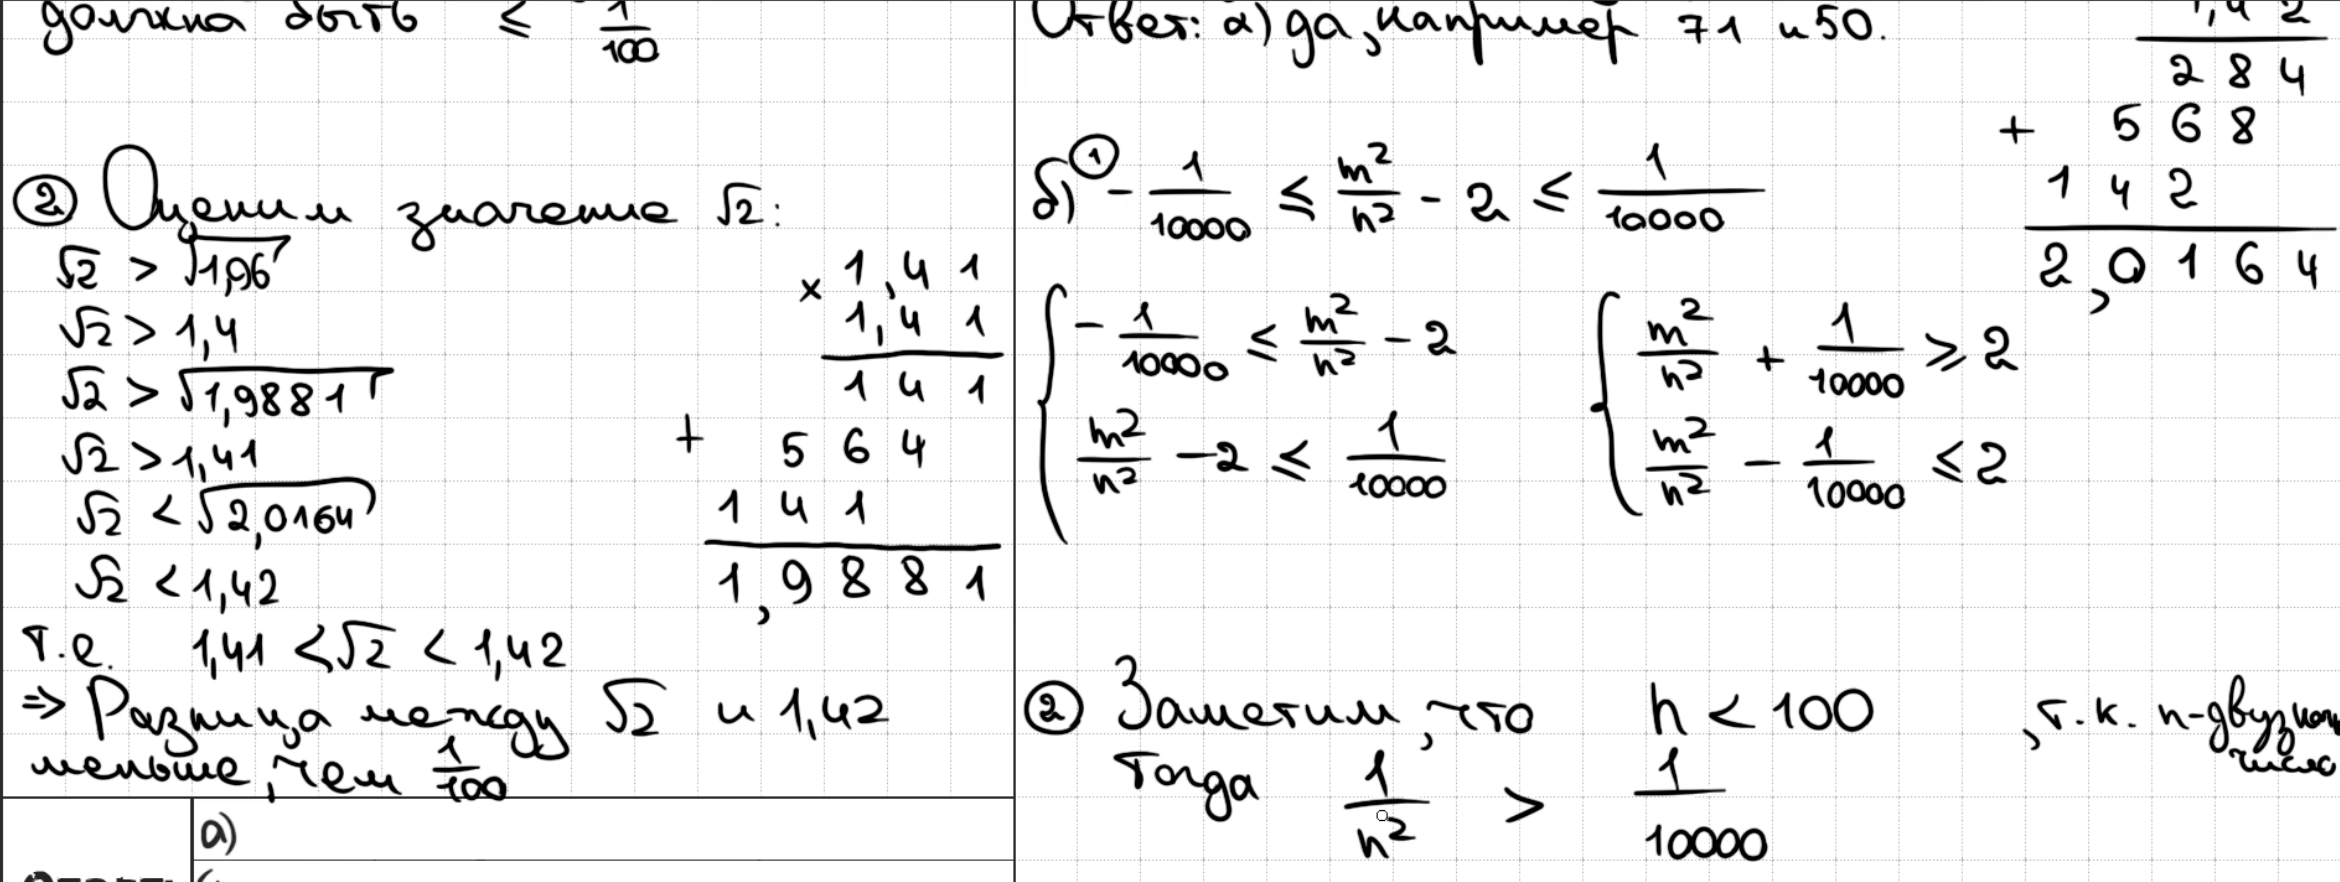 должна быть ≤ 1/100
② Оценим значение √2:
√2 > √1,96
√2 > 1,4
√2 > √1,9881
√2 > 1,41
√2 < √2,0164
√2 < 1,42
т.е. 1,41 < √2 < 1,42
⇒ Разница между √2 и 1,42
меньше, чем 1/100
× 1,41
1,41
141
+ 564
141
1,9881
а)
Ответ: а) да, например 71 и 50.
1,42
284
+ 568
142
2,0164
б) ① -1/10000 ≤ m²/n² - 2 ≤ 1/10000
{ -1/10000 ≤ m²/n² - 2
m²/n² - 2 ≤ 1/10000
{ m²/n² + 1/10000 ≥ 2
m²/n² - 1/10000 ≤ 2
② Заметим, что n < 100, т.к. n-двузначн
число
Тогда 1/n² > 1/10000